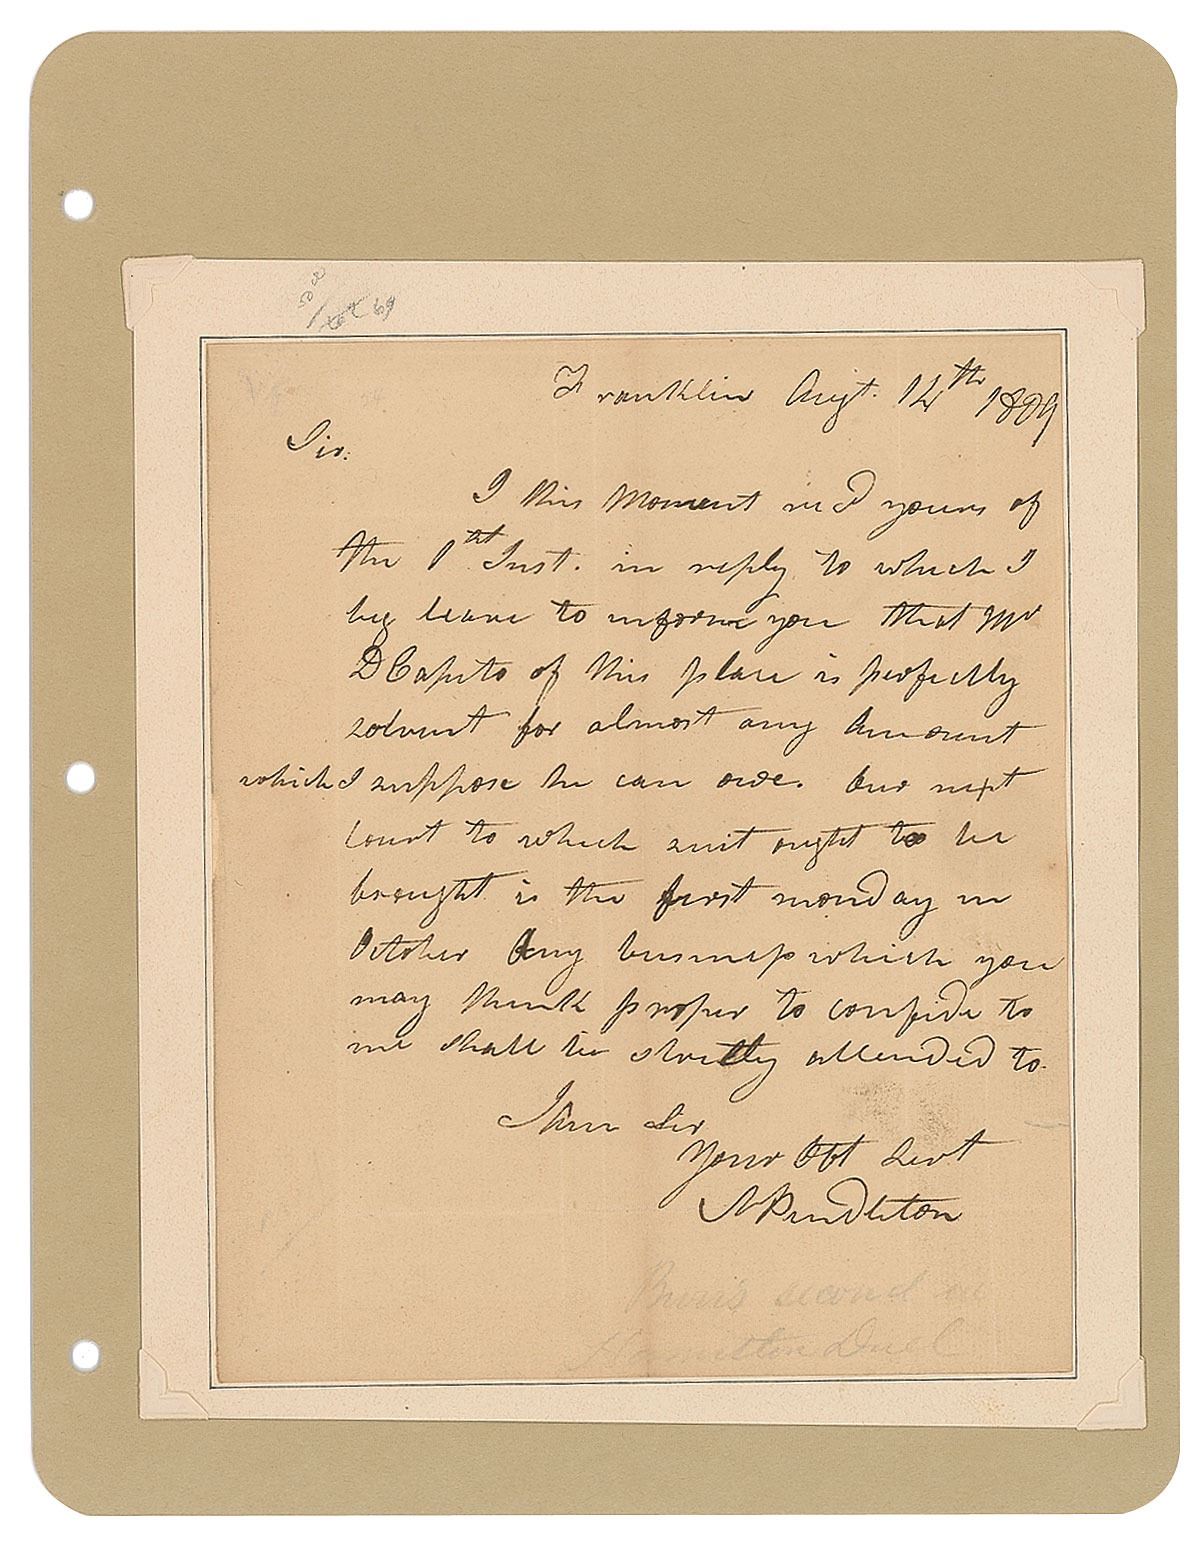 Franklin Augt. 14th 1809
Sir.
I this Moment recd yours of
the 1st Inst. in reply to which I
beg leave to inform you that Mr
D Capito of this place is perfectly
solvent for almost any Amount
which I suppose he can owe. Our next
Court to which suit ought to be
brought is the first monday in
October Any business which you
may think proper to confide to
me shall be strictly attended to.
I Am Sir
Your Obt Servt
N Pendleton
Burr's second in
Hamilton Duel